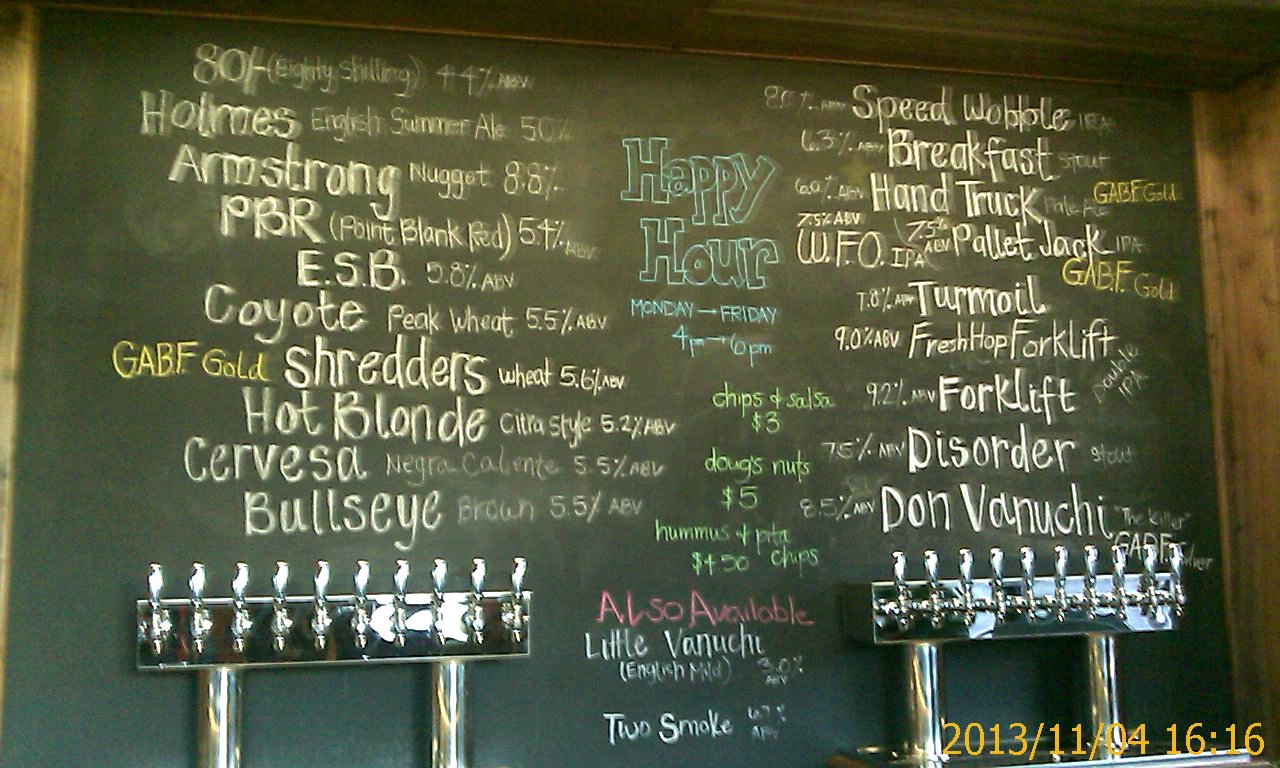 80/- (Eighty Shilling) 4.4% ABV
Holmes English Summer Ale 5.0%
Armstrong Nugget 8.8%
PBR (Point Blank Red) 5.4% ABV
E.S.B. 5.8% ABV
Coyote Peak Wheat 5.5% ABV
GABF Gold Shredders Wheat 5.6% ABV
Hot Blonde Citra style 5.2% ABV
Cervesa Negra Caliente 5.5% ABV
Bullseye Brown 5.5% ABV
Happy
Hour
MONDAY → FRIDAY
4pm → 6pm
chips & salsa
$3
doug's nuts
$5
hummus & pita
chips
$4.50
Also Available
Little Vanuchi
(English Mild) 3.0%
ABV
Two Smoke 6.7%
ABV
8.0% ABV Speed Wobble IPA
6.3% ABV Breakfast Stout
6.0% ABV Hand Truck Pale Ale GABF Gold
7.5% ABV
W.F.O. IPA
7.5%
ABV Pallet Jack IPA
GABF Gold
7.8% ABV Turmoil
9.0% ABV Fresh Hop Forklift
9.2% ABV Forklift Double
IPA
7.5% ABV Disorder Stout
8.5% ABV Don Vanuchi "The Killer"
GABF Silver
2013/11/04 16:16